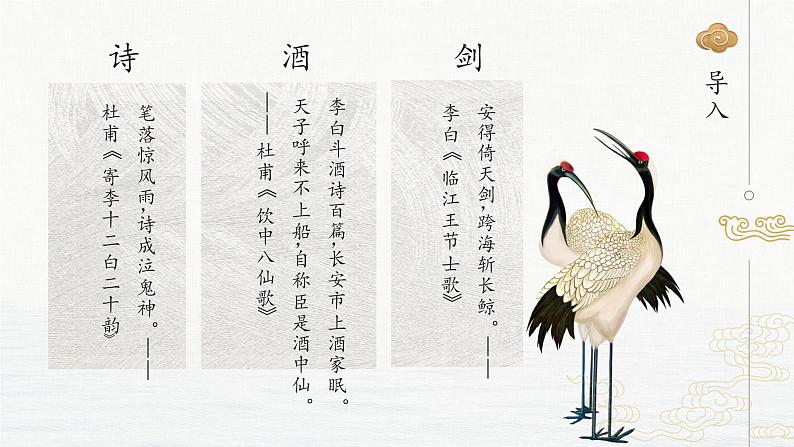 导入
诗
笔落惊风雨，诗成泣鬼神。——
杜甫《寄李十二白二十韵》
酒
李白斗酒诗百篇，长安市上酒家眠。
天子呼来不上船，自称臣是酒中仙。
——杜甫《饮中八仙歌》
剑
安得倚天剑，跨海斩长鲸。——
李白《临江王节士歌》